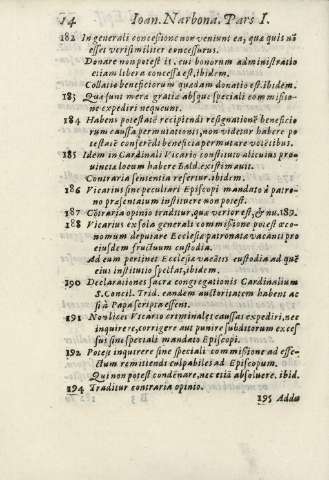 14 Ioan. Narbona. Pars I.
182 In generali concessione non veniunt ea, quæ quis nõ
esset verisimiliter concessurus.
Donare non potest is, cui bonorum administratio
etiam libera concessa est, ibidem.
Collatio beneficiorum quædam donatio est. ibidem.
183 Quæ sunt mera gratiæ absque speciali commissio-
ne expediri nequeunt.
184 Habens potestatẽ recipiendi resignationẽ beneficio
rum caussa permutationis, non videtur habere po
testatẽ conferẽdi beneficia permutare volẽtibus.
185 Idem in Cardinali Vicario constituto alicuius pro
uinciæ locum habere Bald. existimauit.
Contraria sententia refertur. ibidem.
186 Vicarius sine peculiari Episcopi mandato à patro-
no præsentatum instituere non potest.
187 Cõtraria opinio traditur, quæ verior est, & nu. 189.
188 Vicarius ex sola generali commissione potest œco-
nomum deputare Ecclesiæ patronatæ vacãti pro
eiusdem fructuum custodia.
Ad eum pertinet Ecclesiæ vacãtis custodia ad quẽ
eius institutio spectat, ibidem.
190 Declarationes sacræ congregationis Cardinalium
S. Concil. Trid. eandem auctoritatem habent ac
si à Papa scriptæ essent.
191 Non licet Vicario criminales caussas expediri, nec
inquirere, corrigere aut punire subditorum exces
sus sine speciali mandato Episcopi.
192 Potest inquirere sine speciali commissione ad effe-
ctum remittendi culpabiles ad Episcopum.
Qui non potest condẽnare, nec etiã absoluere. ibid.
194 Traditur contraria opinio.
195 Addu